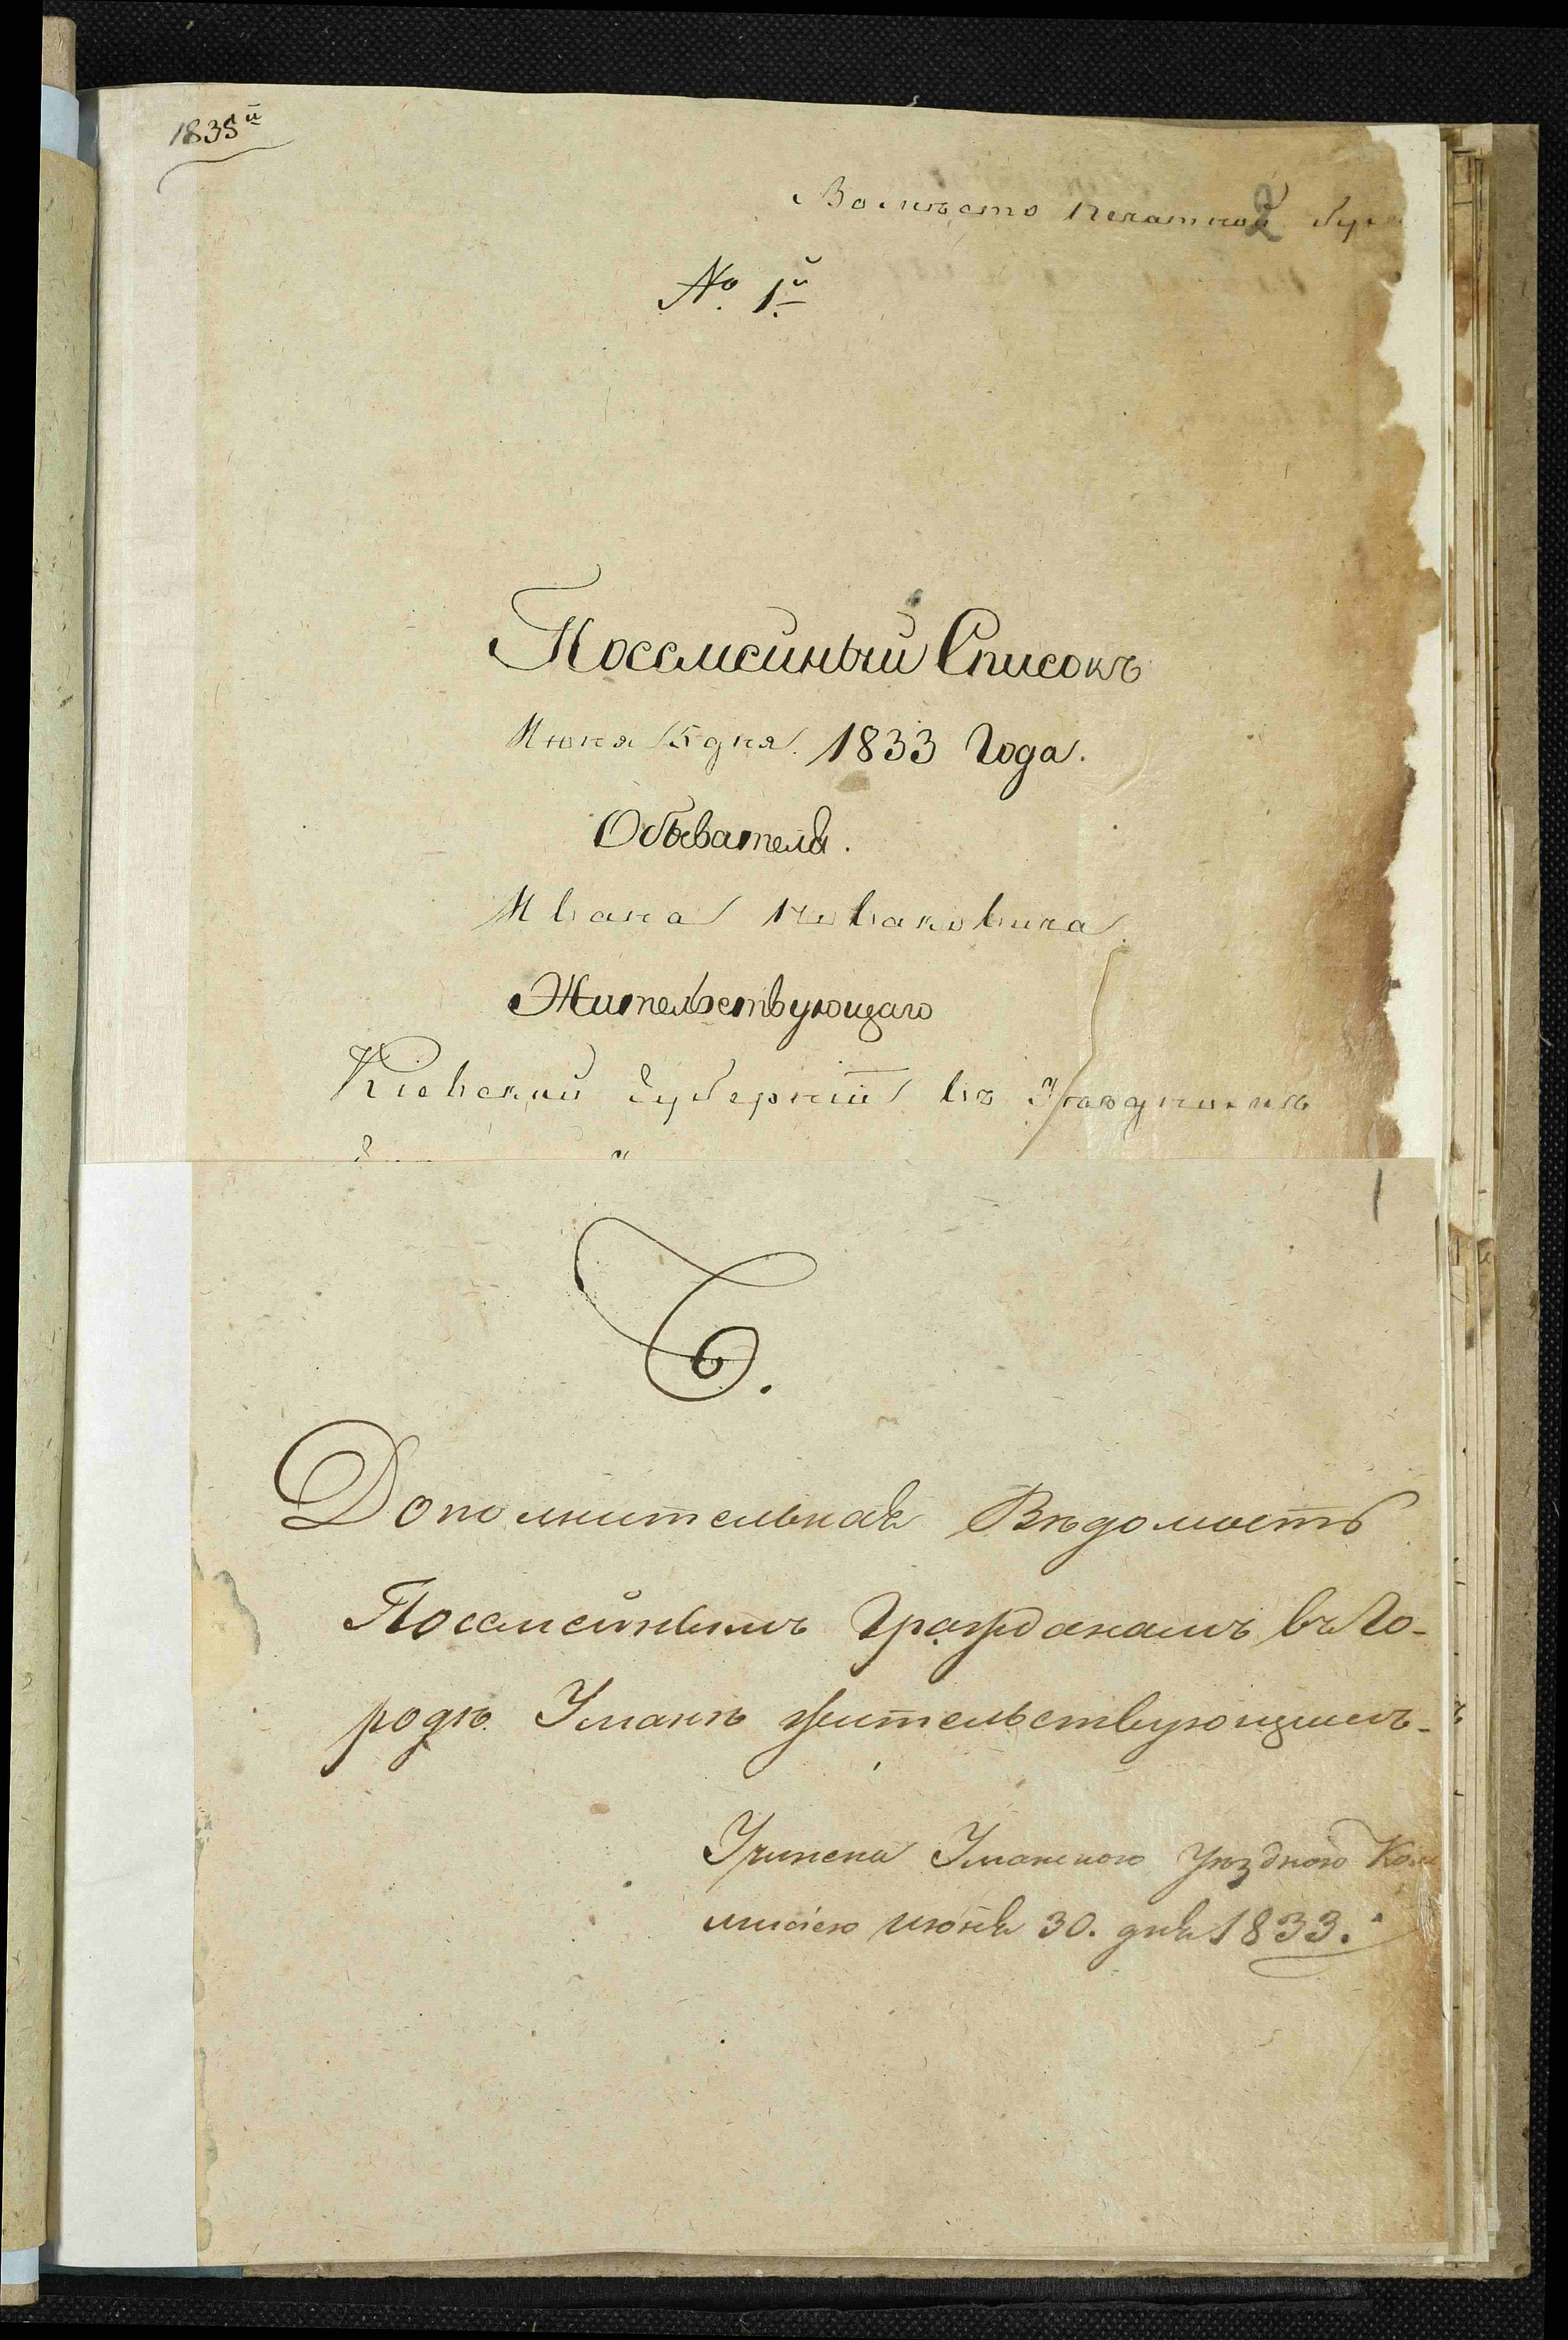 1835й
2
Вомѣсто печатной
№ 1й
Посемейный Списокъ
Июня 15 дня 1833 Года.
Обывателя.
Ивана
Жительствующаго
Киевской Губернїи въ
1
Дополнительная Вѣдомость
Посемейнымъ Гражданамъ въ Го-
родѣ Уманѣ жительствующимъ.
Учинена Уманскою Уѣздною Ком
мисіею июня 30. дня 1833.